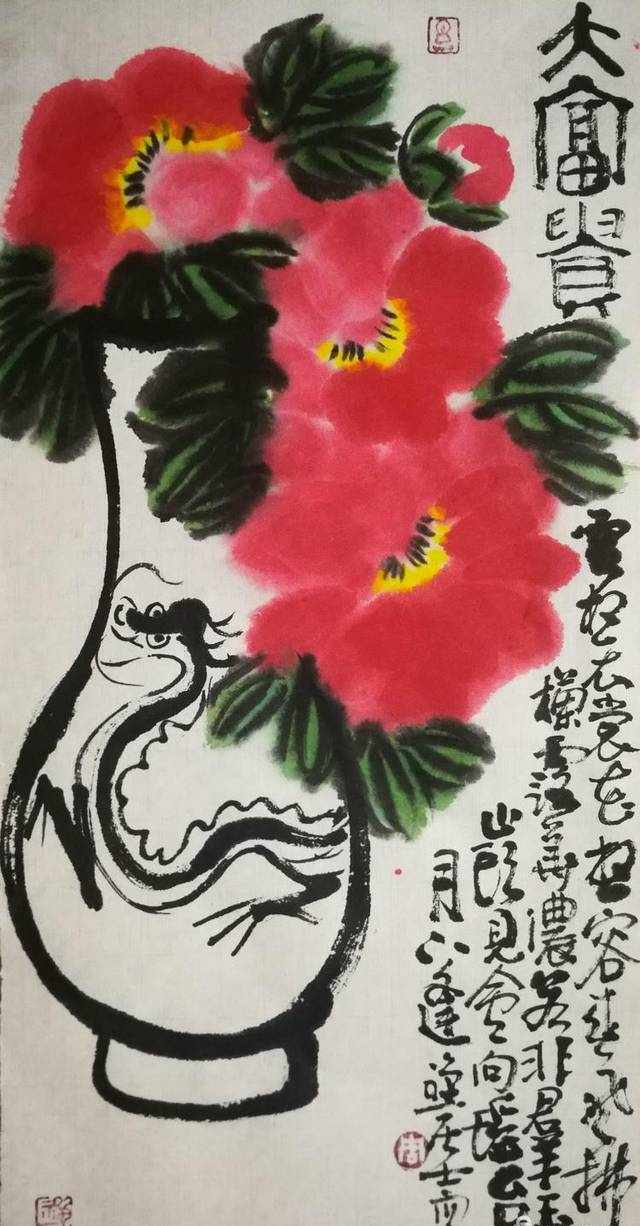 大富貴
雲想衣裳花想容春風拂
檻露華濃若非群玉
山頭見會向瑤台
月下逢居士